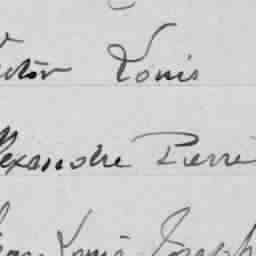 Victor Louis
Alexandre Pierre
Jean Louis Joseph